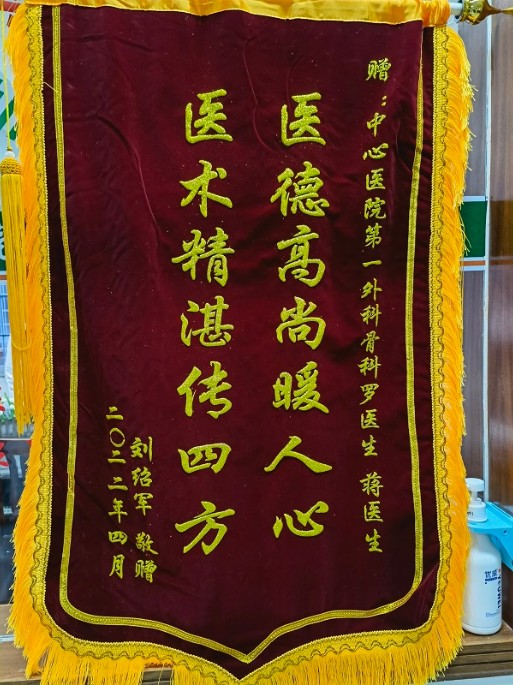 赠：中心医院第一外科骨科罗医生 蒋医生
医德高尚暖人心
医术精湛传四方
刘绍军 敬赠
二〇二二年四月